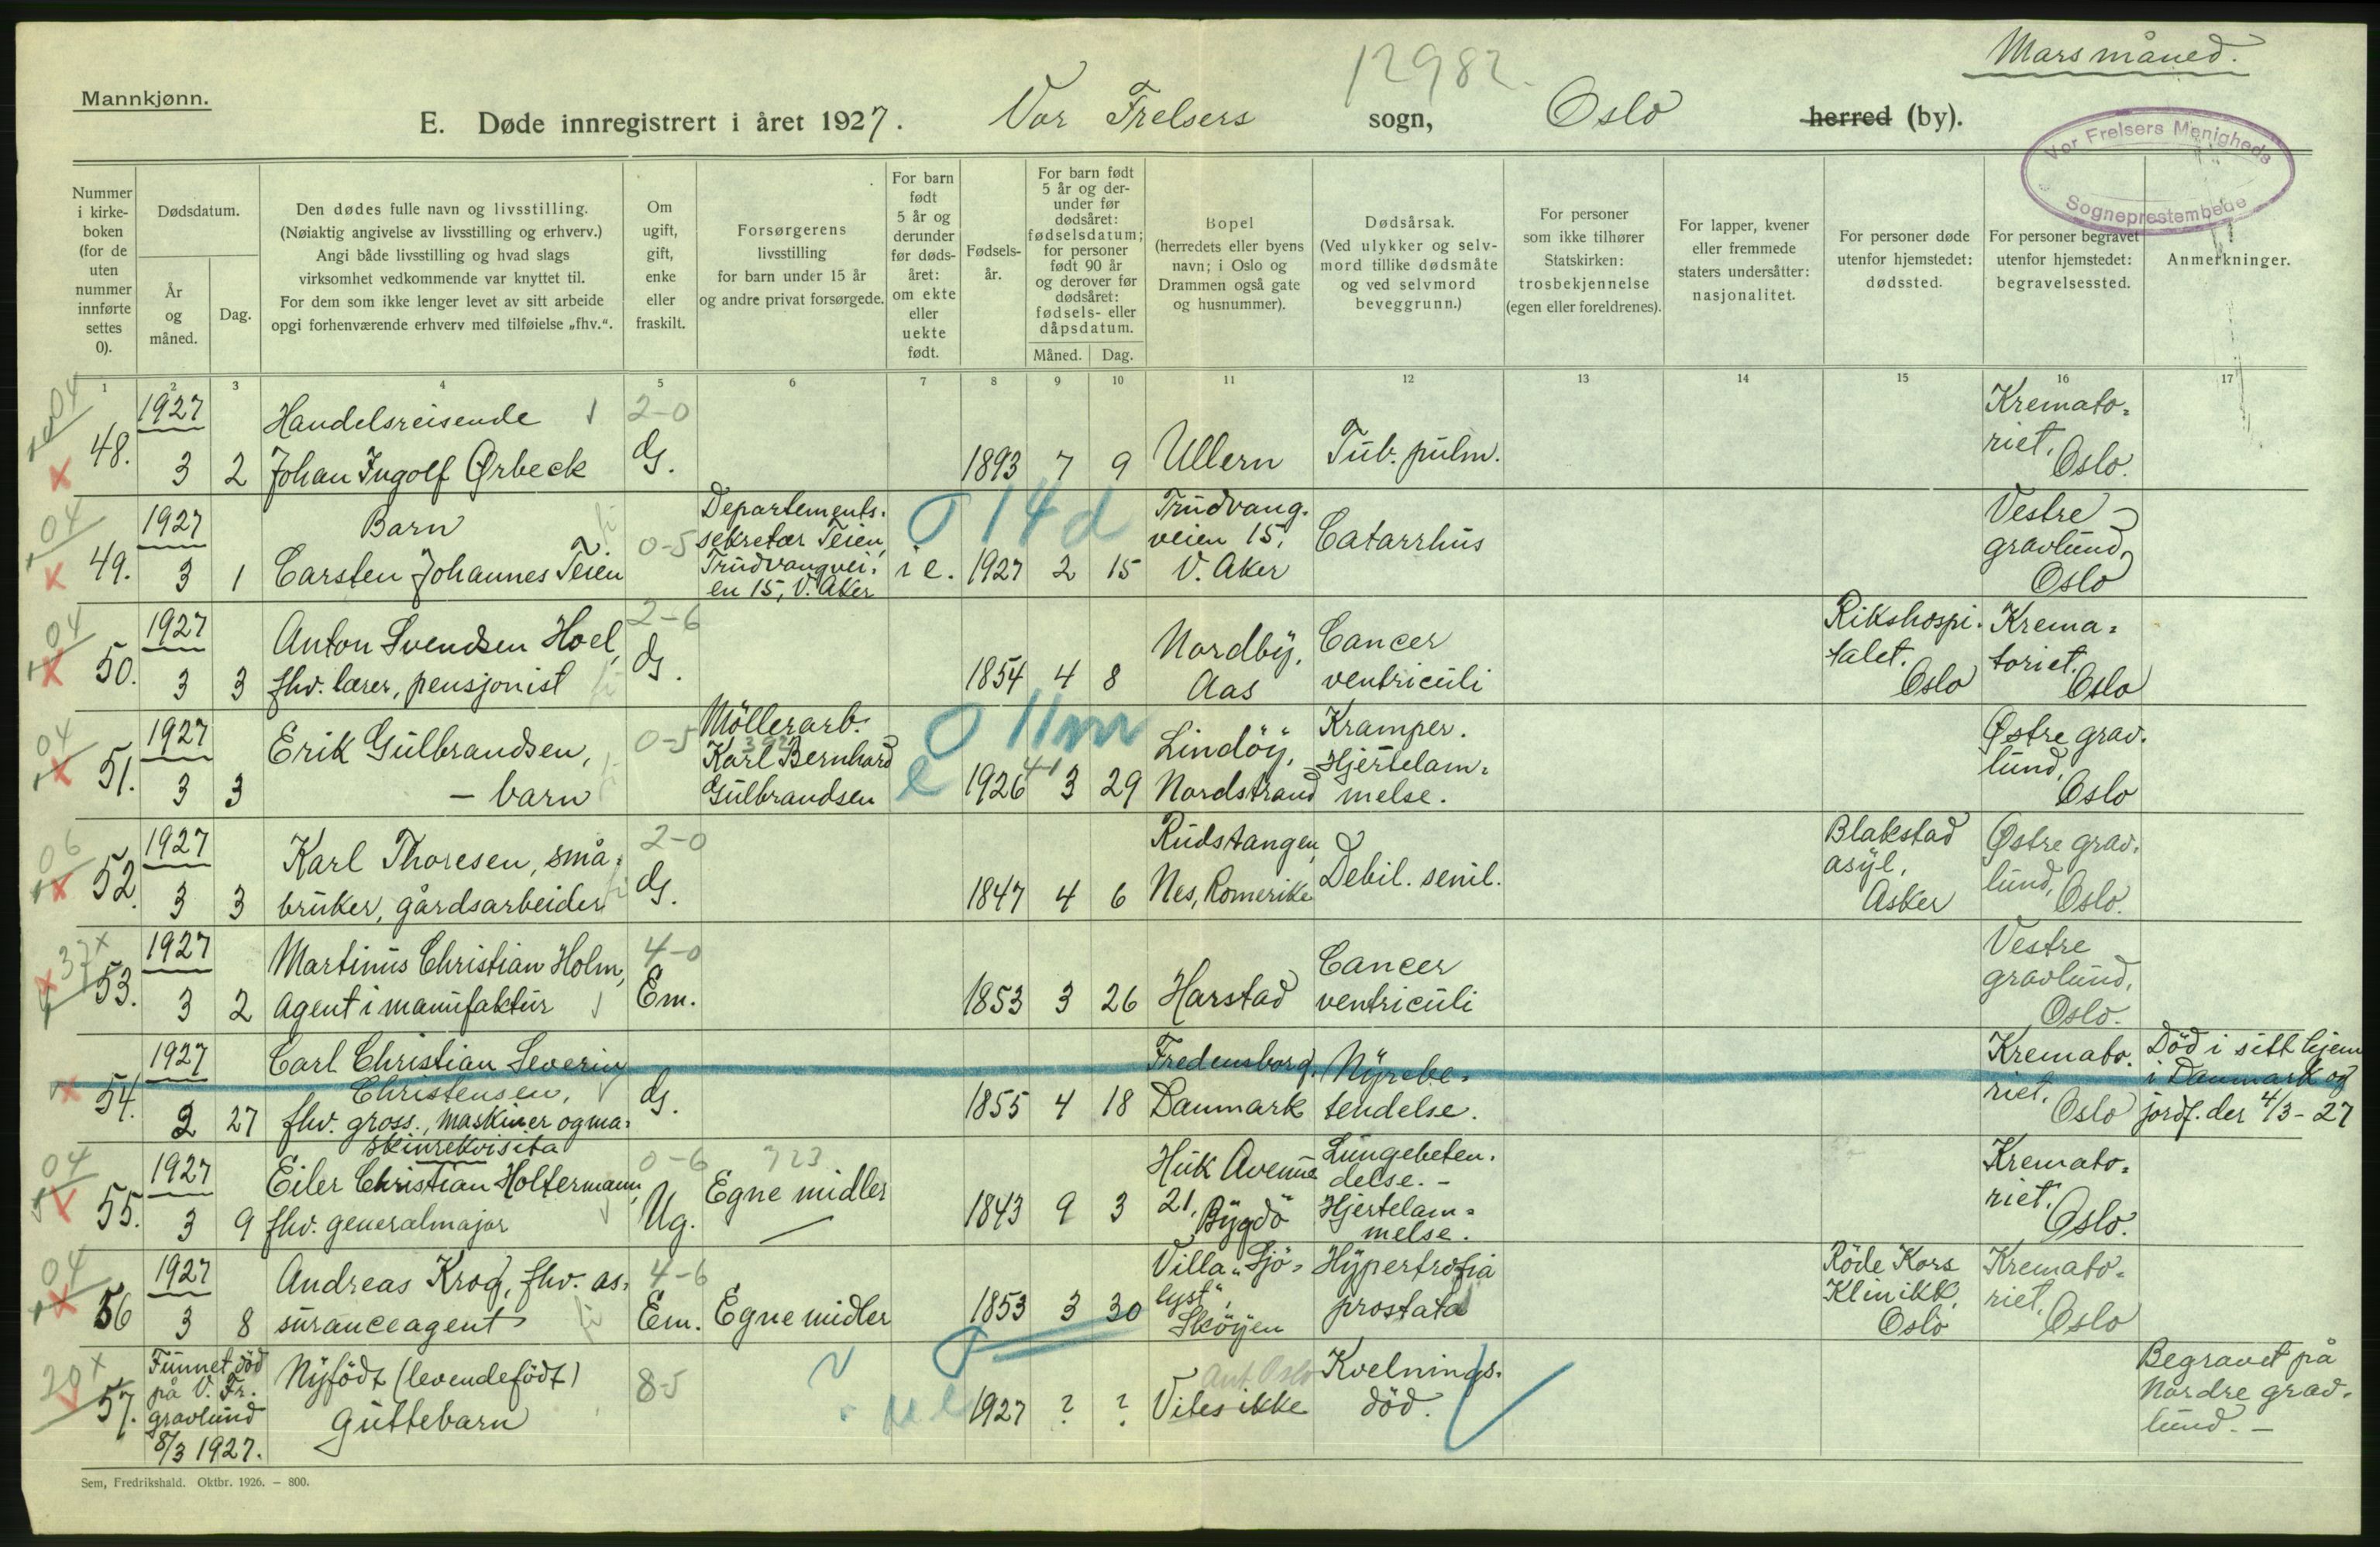 Mars måned.
12982.
Mannkjønn.
E. Døde innregistrert i året 1927. Vor Frelsers sogn, Oslo herred (by).
Vor Frelsers Menigheds
Sogneprestembede
Nummer i kirke-boken (for de uten nummer innførte settes 0).
Dødsdatum.
År og måned.
Dag.
Den dødes fulle navn og livsstilling.
(Nøiaktig angivelse av livsstilling og erhverv.)
Angi både livsstilling og hvad slags
virksomhet vedkommende var knyttet til.
For dem som ikke lenger levet av sitt arbeide
opgi forhenværende erhverv med tilføielse „fhv.“.
Om ugift, gift, enke eller fraskilt.
Forsørgerens
livsstilling
for barn under 15 år
og andre privat forsørgede.
For barn født 5 år og derunder før døds-året: om ekte eller uekte født.
Fødsels-
år.
For barn født
5 år og der-
under før
dødsåret:
fødselsdatum;
for personer
født 90 år
og derover før
dødsåret:
fødsels- eller
dåpsdatum.
Måned. Dag.
Bopel
(herredets eller byens
navn; i Oslo og
Drammen også gate
og husnummer).
Dødsårsak.
(Ved ulykker og selv-
mord tillike dødsmåte
og ved selvmord
beveggrunn.)
For personer
som ikke tilhører
Statskirken:
trosbekjennelse
(egen eller foreldrenes).
For lapper, kvener
eller fremmede
staters undersåtter:
nasjonalitet.
For personer døde
utenfor hjemstedet:
dødssted.
For personer begravet
utenfor hjemstedet:
begravelsessted.
Anmerkninger.
1 2 3 4 5 6 7 8 9 10 11 12 13 14 15 16 17
04
48.
1927
3 2
Handelsreisende
Johan Ingolf Ørbeck
2-0
G.
1893 7 9
Ullern
Tub. pulm.
Kremato-
riet, Oslo.
04
49.
1927
3 1
Barn
Carsten Johannes Teien
0-5
Departements-
sekretær Teien,
Trudvangvei-
en 15, V. Aker
i e.
0 14 d
1927 2 15
Trudvang-
veien 15,
V. Aker
Catarrhus
Vestre
gravlund,
Oslo
04
50.
1927
3 3
Anton Svendsen Hoel,
fhv. lærer, pensjonist
2-6
G.
1854 4 8
Nordby,
Aas
Cancer
ventriculi
Rikshospi-
talet,
Oslo
Krema-
toriet,
Oslo
04
51.
1927
3 3
Erik Gulbrandsen,
- barn
0-5
Möllerarb.
Karl Bernhard
Gulbrandsen
e
0 11m
1926 3 29
Lindöy,
Nordstrand
Kramper.
Hjertelam-
melse.
Østre grav-
lund,
Oslo
06
52.
1927
3 3
Karl Thoresen, små-
bruker, gårdsarbeider
2-0
G.
1847 4 6
Rudstangen,
Nes, Romerike
Debil. senil.
Blakstad
asyl,
Asker
Østre grav-
lund, Oslo.
37
53.
1927
3 2
Martinus Christian Holm,
agent i manufaktur
4-0
Em.
1853 3 26
Harstad
Cancer
ventriculi
Vestre
gravlund,
Oslo.
54.
1927
2 27
Carl Christian Severin
Christensen,
fhv. gross., maskiner og ma-
skinrekvisita
G.
1855 4 18
Fredensborg,
Danmark
Nyrebe-
tendelse.
Kremato-
riet, Oslo
Död i sitt hjem
i Danmark og
jordf. der 4/3-27
04
55.
1927
3 9
Eiler Christian Holtermann,
fhv. generalmajor
0-6
Ug.
723
Egne midler
1843 9 3
Huk Avenue
21,
Bygdö
Lungebeten-
delse. -
Hjertelam-
melse.
Kremato-
riet,
Oslo.
04
56
1927
3 8
Andreas Krog, fhv. as-
suranceagent
4-6
Em.
Egne midler
1853 3 30
Villa „Sjö-
lyst“,
Sköyen
Hypertrofia
prostata
Röde Kors
Klinikk,
Oslo
Kremato-
riet, Oslo
20
57.
Funnet död
på V. Fr.
gravlund
8/3 1927.
Nyfödt (levendefödt)
guttebarn
8-5
u e
1927 ? ?
Ant. Oslo
Vites ikke
Kvelnings-
död.
Begravet på
Nordre grav-
lund. -
Sem, Fredrikshald. Oktbr. 1926. - 800.